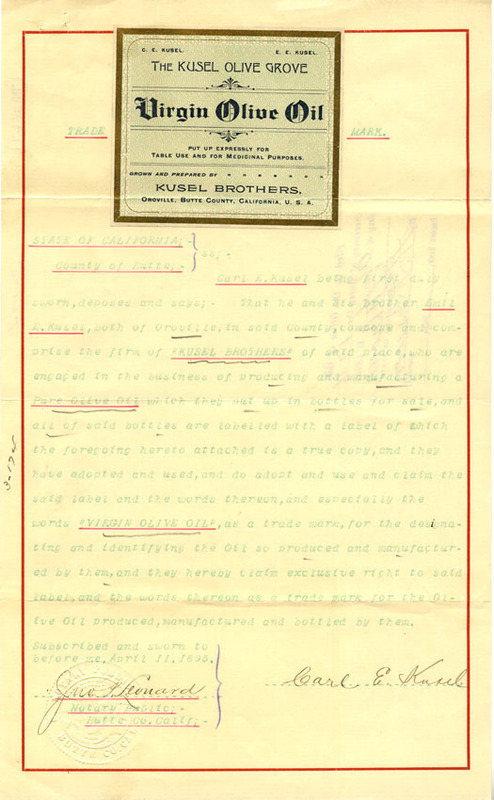 C. E. KUSEL. E. E. KUSEL.
THE KUSEL OLIVE GROVE
Virgin Olive Oil
PUT UP EXPRESSLY FOR
TABLE USE AND FOR MEDICINAL PURPOSES.
GROWN AND PREPARED BY
KUSEL BROTHERS,
OROVILLE, BUTTE COUNTY, CALIFORNIA, U. S. A.
TRADE MARK.
STATE OF CALIFORNIA;-
County of Butte;- } ss;-
Carl E.Kusel being first duly
sworn,deposes and says;- That he and his brother Emil
E.Kusel,both of Oroville,in said County,compose and com-
prise the firm of "KUSEL BROTHERS" of said place,who are
engaged in the business of producing and manufacturing a
Pure Olive Oil which they put up in bottles for sale,and
all of said bottles are labelled with a label of which
the foregoing hereto attached is a true copy,and they
have adopted and used,and do adopt and use and claim the
said label and the words thereon,and especially the
words "VIRGIN OLIVE OIL",as a trade mark,for the designa-
ting and identifying the Oil so produced and manufactur-
ed by them,and they hereby claim exclusive right to said
label,and the words thereon as a trade mark for the Ol-
ive Oil produced,manufactured and bottled by them.
Subscribed and sworn to
before me,April 11,1898.
Jno F Leonard
Carl E. Kusel
Notary Public;-
Butte Co.Calif;-